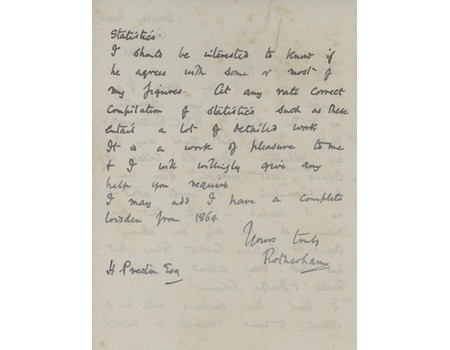 Statistics.
I should be interested to know if
he agrees with some or most of
my figures. At any rate correct
compilation of statistics such as these
entail a lot of detailed work
It is a work of pleasure to me
& I will willingly give any
help you require
I may add I have a complete
Wisden from 1864
Yours truly
Rotherham
H Preston Esq